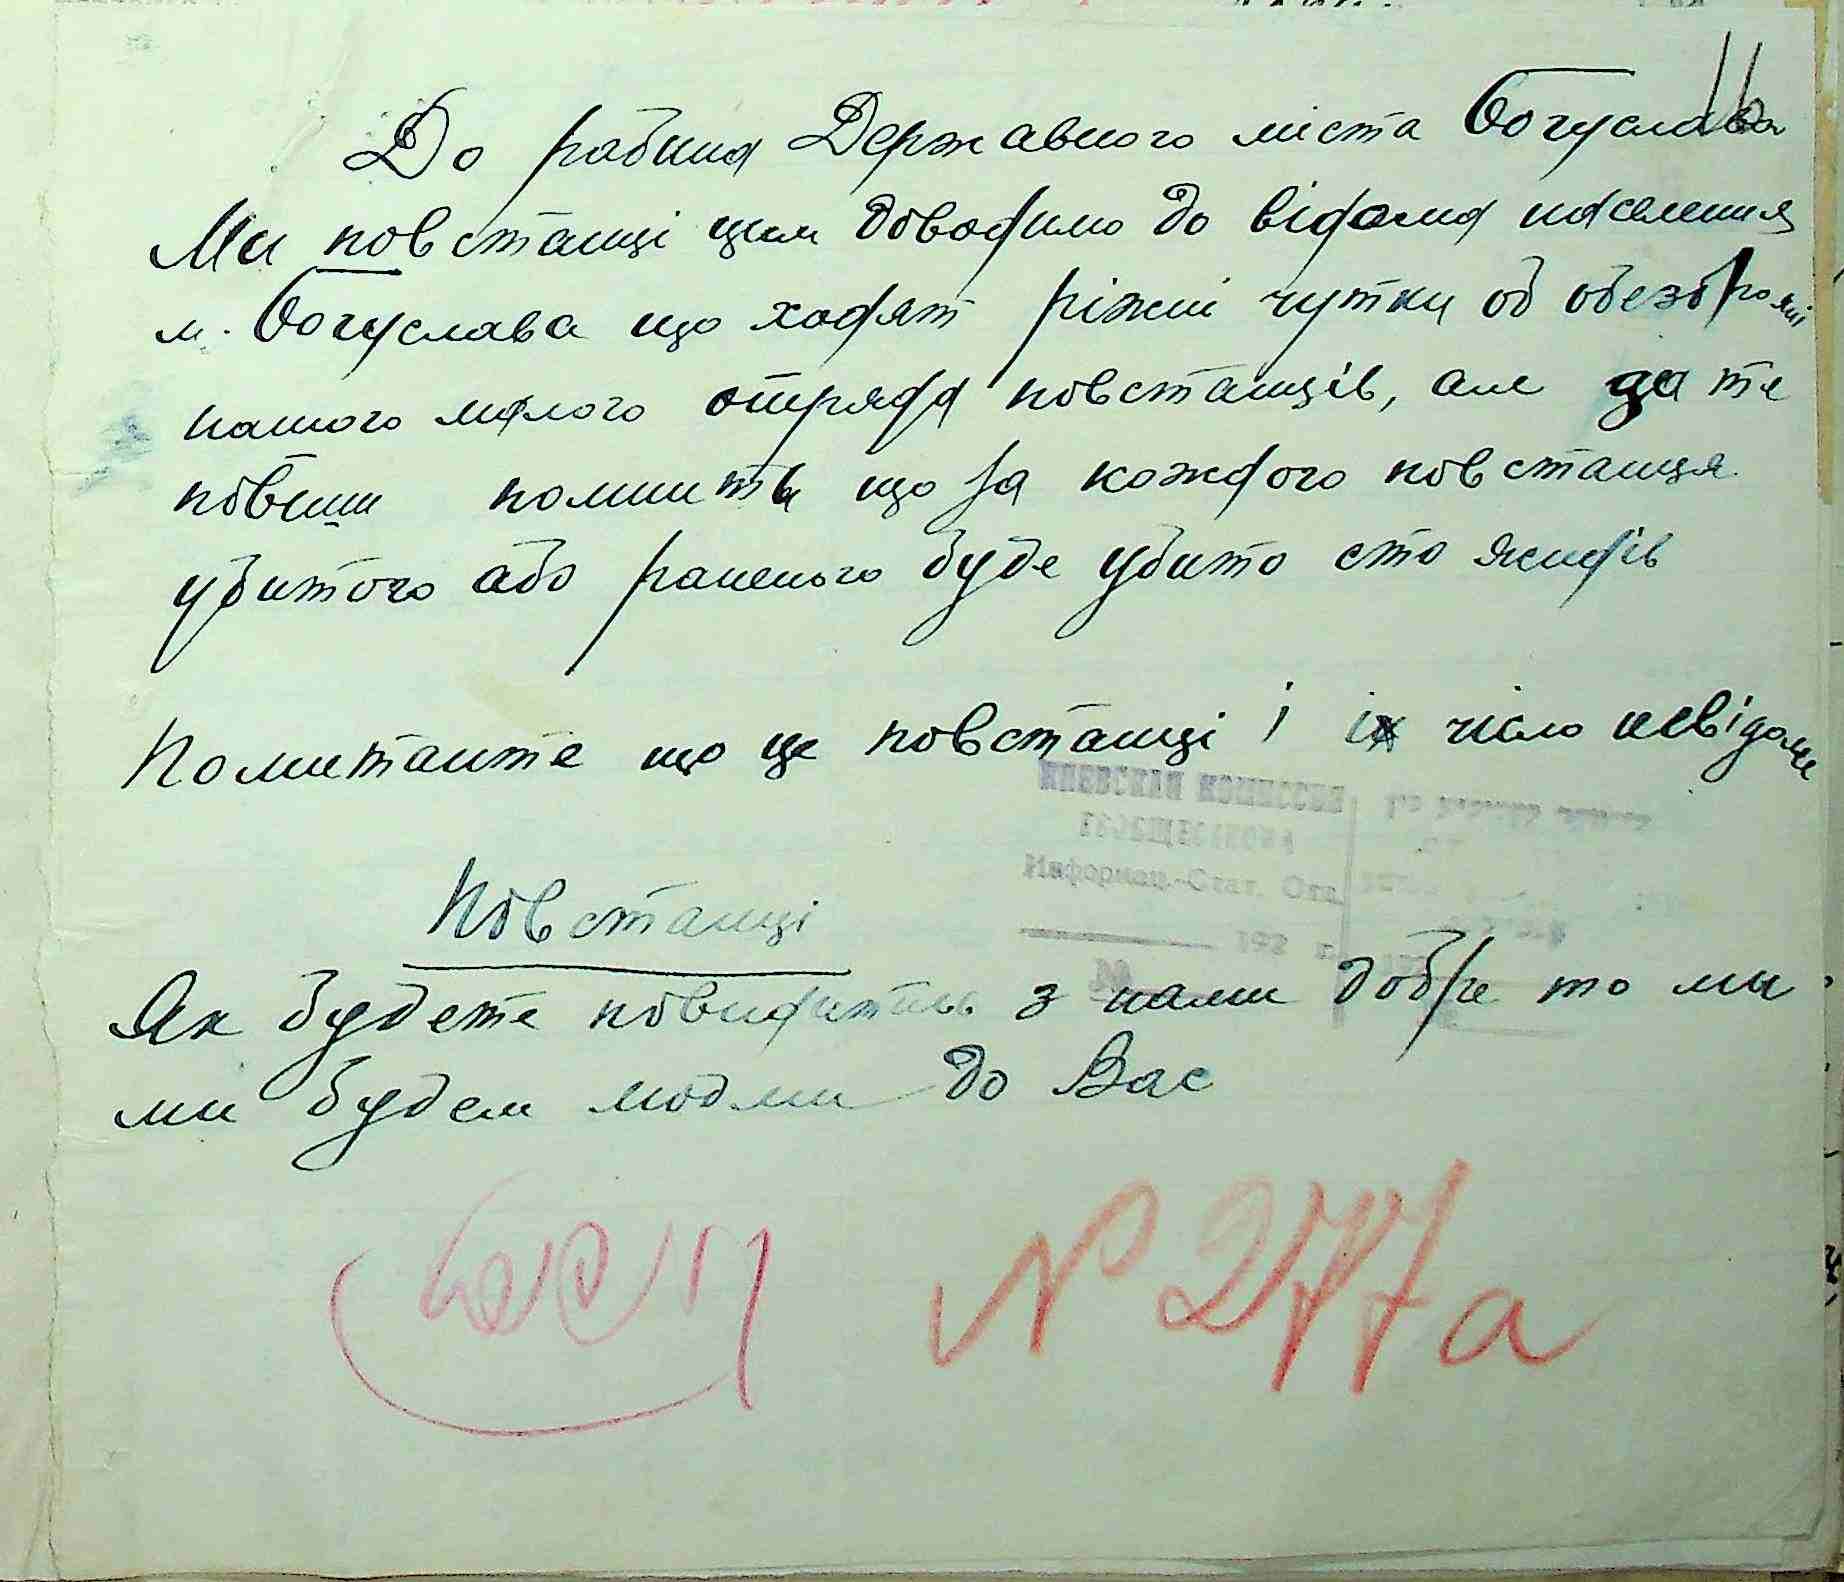 До рабина Державного міста Богуслава
Ми повстанці цим доводимо до відома населення
м. Богуслава що ходят ріжні чутки об обезброяні
нашого малого отряда повстанців, але за те
повінни помнить що за кождого повстанця
убитого або раненого буде убито сто жидів
Помитайте що це повстанці і їх чісло невідоме
КИЕВСКАЯ КОМИССИЯ
Информац.-Стат. Отд.
192 г.
№
Повстанці
Як будете поводитись з нами добре то ми
ми будем людми до Вас
№ 277а